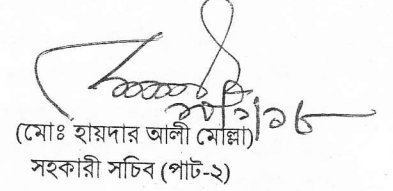 (মোঃ হায়দার আলী মোল্লা)
সহকারী সচিব (পাট-২)